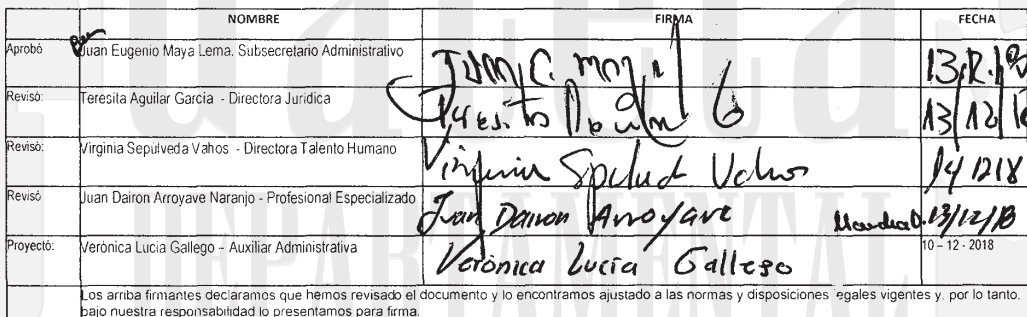 NOMBRE FIRMA FECHA
Aprobó Juan Eugenio Maya Lema. Subsecretario Administrativo
Revisó: Teresita Aguilar Garcia - Directora Jurídica 13/12/18
Revisó: Virginia Sepulveda Vahos - Directora Talento Humano Virginia 14 1218
Revisó Juan Dairon Arroyave Naranjo - Profesional Especializado Juan Dairon Arroyave 13/12/18
Proyectó: Verónica Lucia Gallego – Auxiliar Administrativa Verónica Lucía Gallego 10 – 12 - 2018
Los arriba firmantes declaramos que hemos revisado el documento y lo encontramos ajustado a las normas y disposiciones legales vigentes y. por lo tanto.
bajo nuestra responsabilidad lo presentamos para firma.